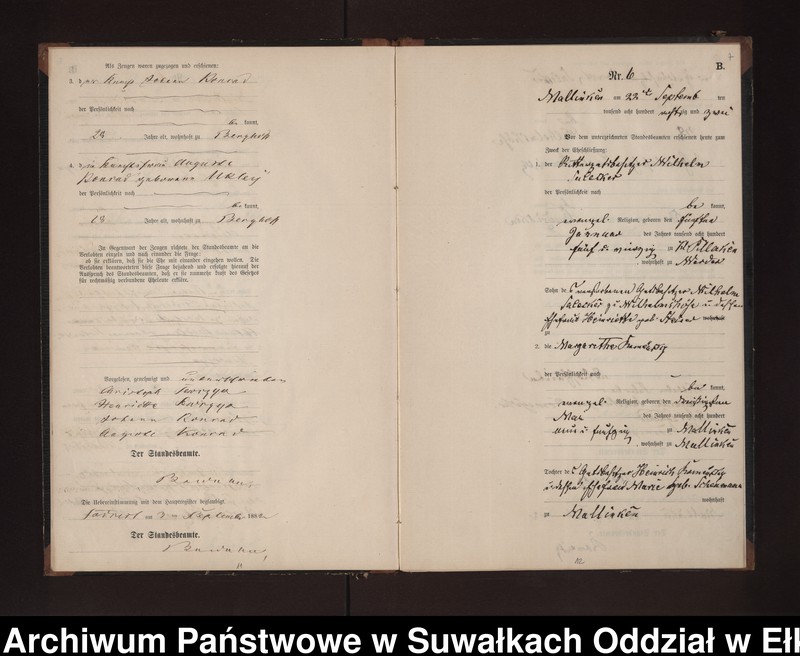 Als Zeugen waren zugezogen und erschienen:
3. der Knecht Johann Konrad
der Persönlichkeit nach
be kannt,
Jahre alt, wohnhaft zu Berghoff
4. die Knechtsfrau Auguste
Konrad geborene
der Persönlichkeit nach
be kannt,
Jahre alt, wohnhaft zu Berghoff
In Gegenwart der Zeugen richtete der Standesbeamte an die
Verlobten einzeln und nach einander die Frage:
ob sie erklären, daß sie die Ehe mit einander eingehen wollen. Die
Verlobten beantworteten diese Frage bejahend und erfolgte hierauf der
Ausspruch des Standesbeamten, daß er sie nunmehr kraft des Gesetzes
für rechtmäßig verbundene Eheleute erkläre.
Vorgelesen, genehmigt und unterschrieben
Christoph
Henriette
Johann Konrad
Auguste Konrad
Der Standesbeamte.
Die Uebereinstimmung mit dem Hauptregister beglaubigt.
am September 188
Der Standesbeamte.
B.
Nr. 6
Mallinken am 22ten Septemb ten
tausend acht hundert achtzig und zwei
Vor dem unterzeichneten Standesbeamten erschienen heute zum
Zweck der Eheschließung:
1. der Rittergutsbesitzer Wilhelm
der Persönlichkeit nach
be kannt,
evangel. Religion, geboren den fünften
Januar des Jahres tausend acht hundert
fünf u vierzig zu Pillacken
, wohnhaft zu Werder
Sohn des verstorbenen Gutsbesitzer Wilhelm
zu Wilhelmshöhe u dessen
Ehefrau Henriette geb. wohnhaft
zu
2. die Margarethe
der Persönlichkeit nach
be kannt,
evangel. Religion, geboren den dreißigsten
Mai des Jahres tausend acht hundert
neun u fünfzig zu Mallinken
, wohnhaft zu Mallinken
Tochter des Gutsbesitzer Heinrich
u dessen Ehefrau Marie geb.
wohnhaft
zu Mallinken
Archiwum Państwowe w Suwałkach Oddział w Ełk